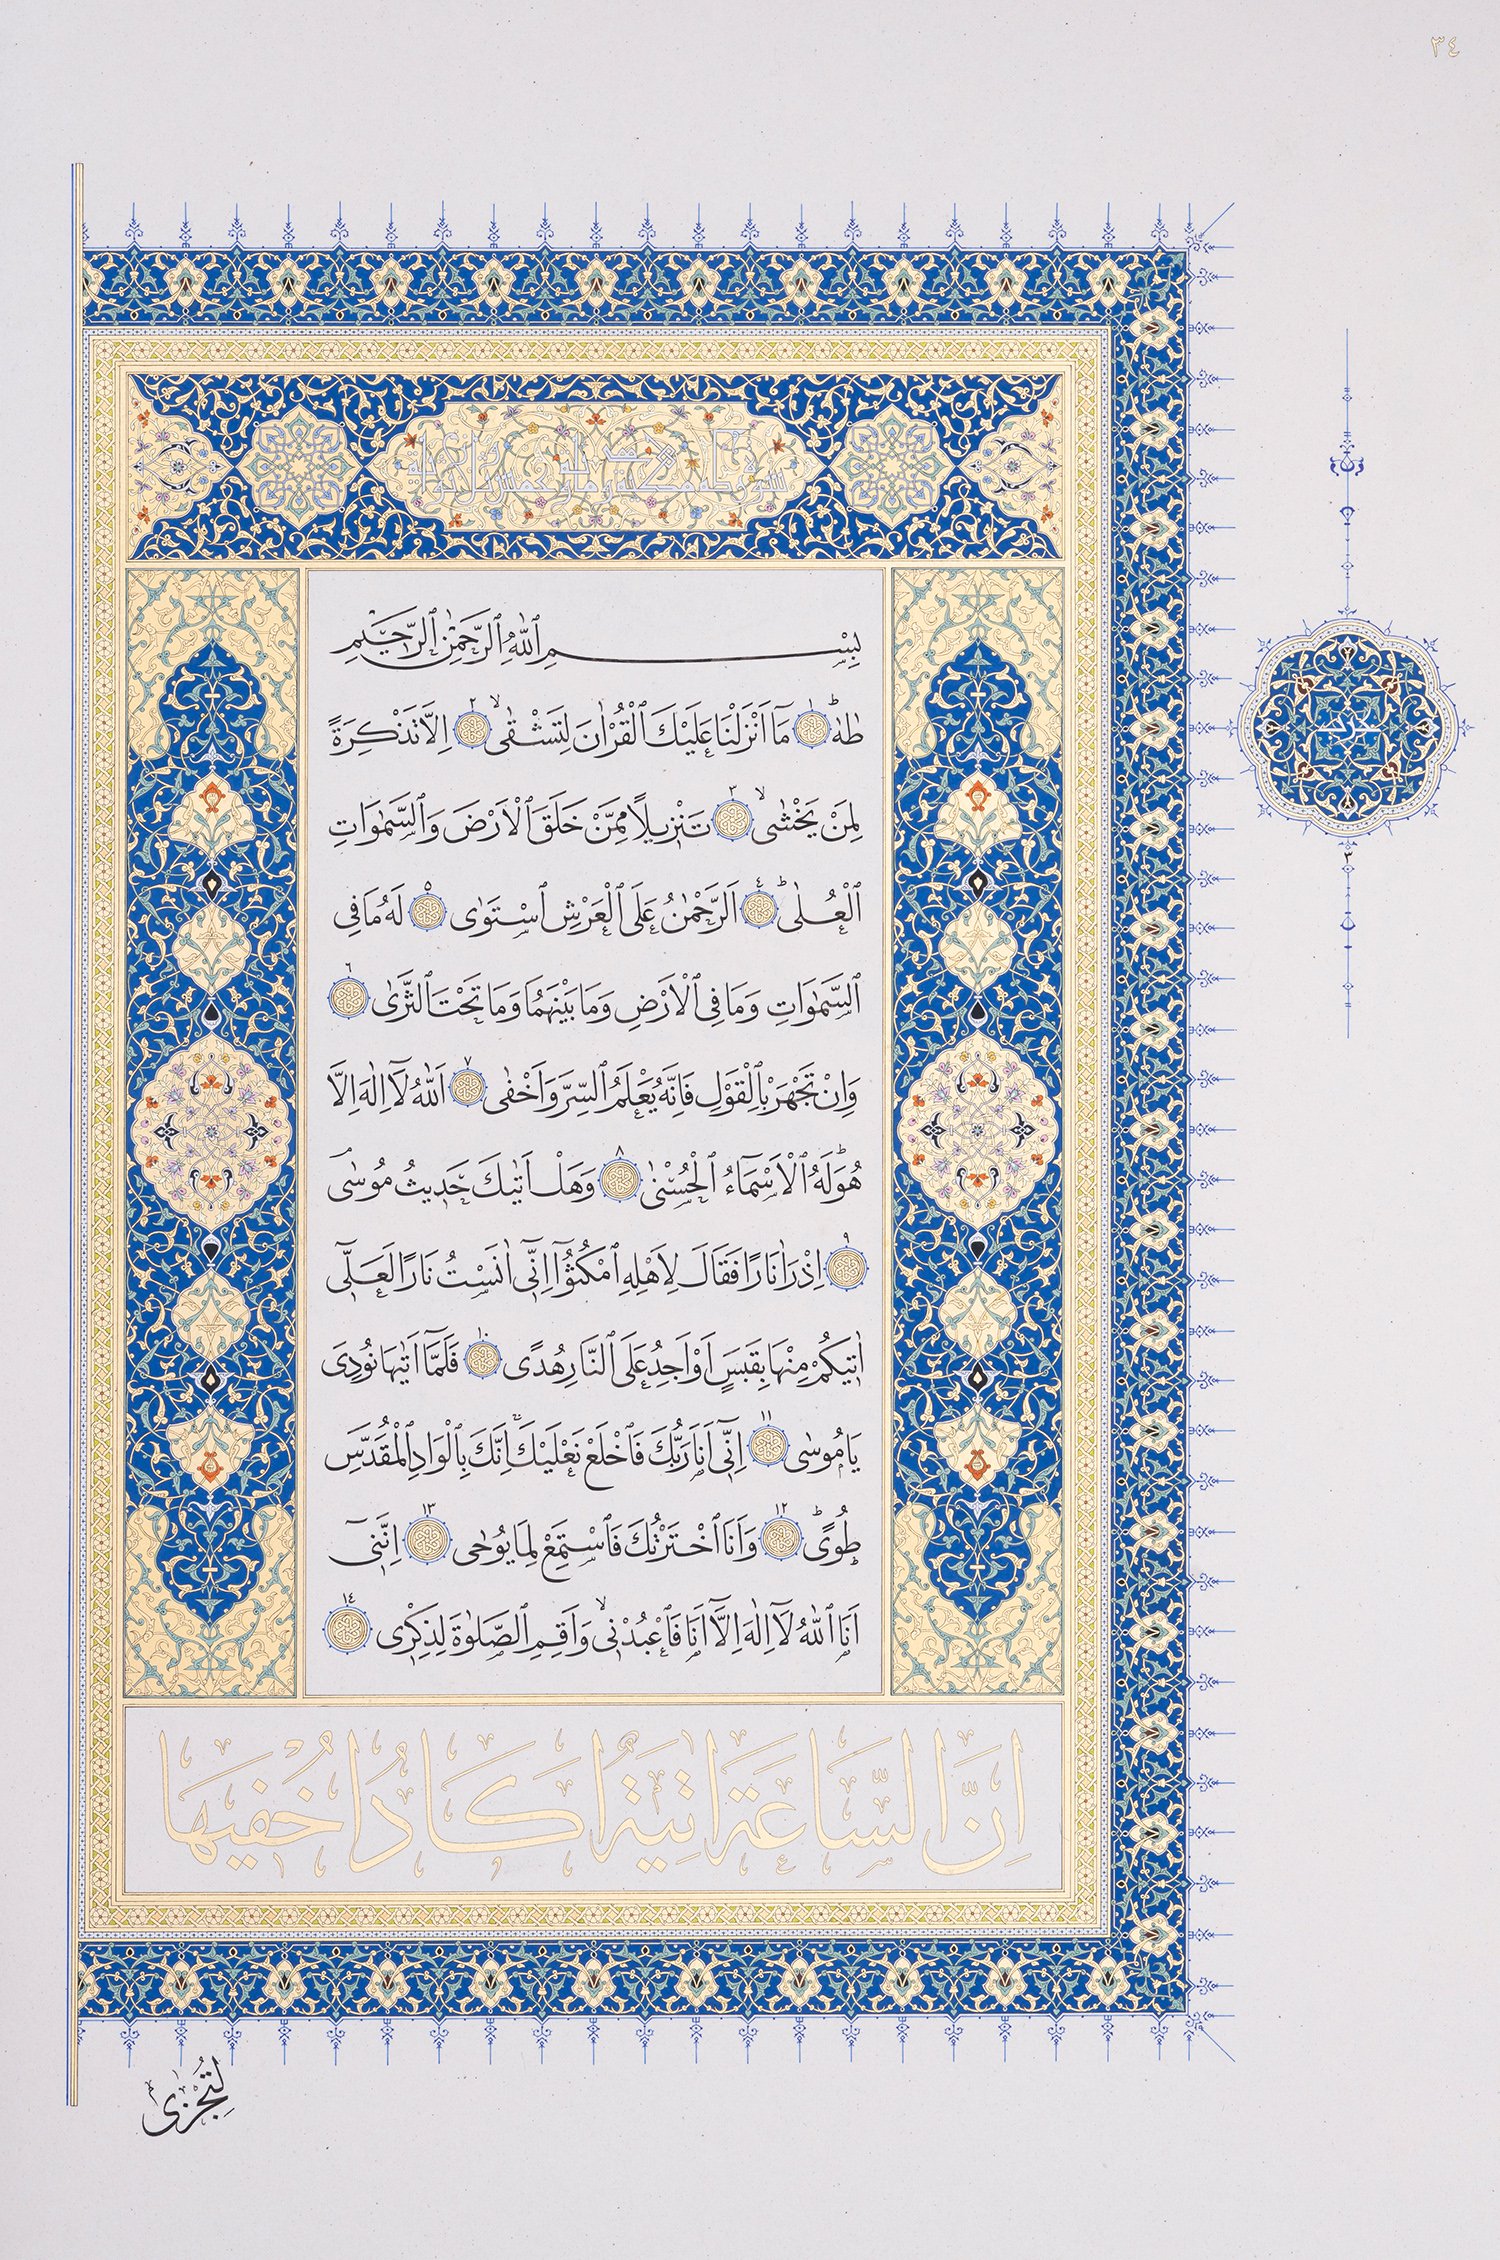 ٣٤
بِسْمِ ٱللّٰهِ ٱلرَّحْمٰنِ ٱلرَّحٖيمِ
طٰهٰؕ ١ مَٓا اَنْزَلْنَا عَلَيْكَ ٱلْقُرْاٰنَ لِتَشْقٰىۙ ٢ اِلَّا تَذْكِرَةً
لِمَنْ يَخْشٰىۙ ٣ تَنْزٖيلًا مِمَّنْ خَلَقَ ٱلْاَرْضَ وَٱلسَّمٰوَاتِ
ٱلْعُلٰىؕ ٤ اَلرَّحْمٰنُ عَلَى ٱلْعَرْشِ ٱسْتَوٰى ٥ لَهُ مَا فِى
ٱلسَّمٰوَاتِ وَمَا فِى ٱلْاَرْضِ وَمَا بَيْنَهُمَا وَمَا تَحْتَ ٱلثَّرٰى ٦
وَاِنْ تَجْهَرْ بِٱلْقَوْلِ فَاِنَّهُ يَعْلَمُ ٱلسِّرَّ وَاَخْفٰى ٧ اَللّٰهُ لَٓا اِلٰهَ اِلَّا
هُوَؕ لَهُ ٱلْاَسْمَٓاءُ ٱلْحُسْنٰى ٨ وَهَلْ اَتٰيكَ حَدٖيثُ مُوسٰىۘ
٩ اِذْ رَاٰ نَارًا فَقَالَ لِاَهْلِهِ ٱمْكُثُٓوا اِنّٖٓى اٰنَسْتُ نَارًا لَعَلّٖٓى
اٰتٖيكُمْ مِنْهَا بِقَبَسٍ اَوْ اَجِدُ عَلَى ٱلنَّارِ هُدًى ١٠ فَلَمَّٓا اَتٰيهَا نُودِىَ
يَا مُوسٰى ١١ اِنّٖٓى اَنَا رَبُّكَ فَٱخْلَعْ نَعْلَيْكَۚ اِنَّكَ بِٱلْوَادِ ٱلْمُقَدَّسِ
طُوًىؕ ١٢ وَاَنَا ٱخْتَرْتُكَ فَٱسْتَمِعْ لِمَا يُوحٰى ١٣ اِنَّنٖٓى
اَنَا ٱللّٰهُ لَٓا اِلٰهَ اِلَّٓا اَنَا فَٱعْبُدْنٖىۙ وَاَقِمِ ٱلصَّلٰوةَ لِذِكْرٖى ١٤
اِنَّ السَّاعَةَ اٰتِيَةٌ اَكَادُ اُخْفٖيهَا
٣
لِتُجْزٰى